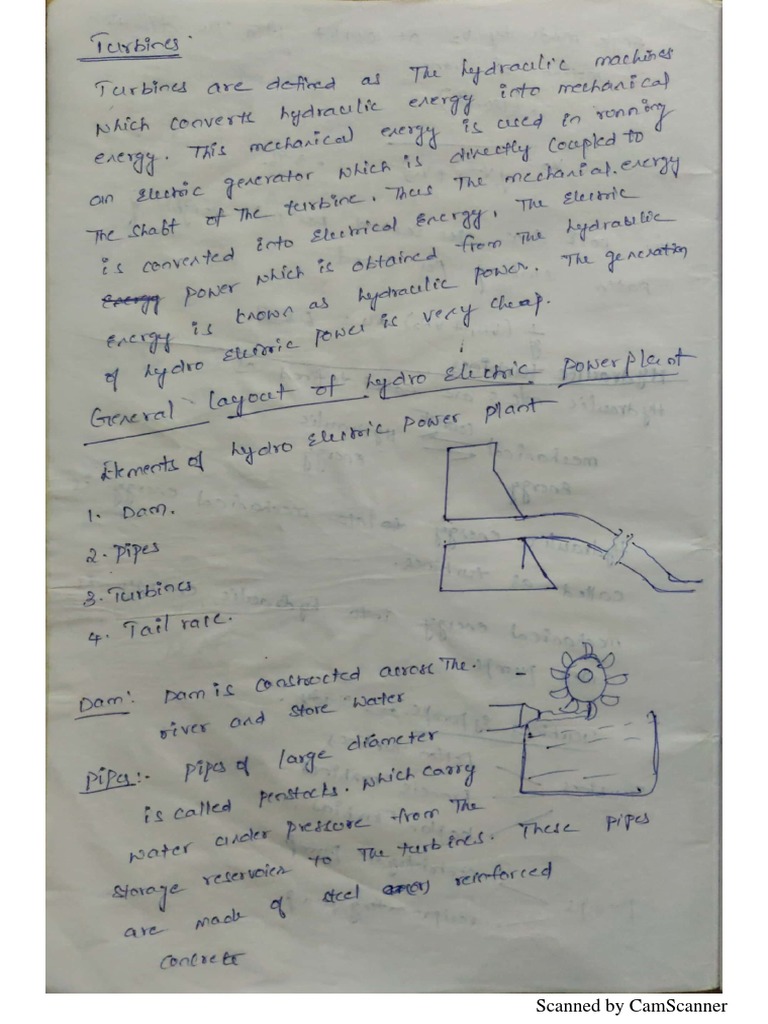 Turbines
Turbines are defined as The hydraulic machines
which converts hydraulic energy into mechanical
energy. This mechanical energy is used in running
an Electric generator which is directly coupled to
The shaft of The turbine. Thus The mechanial energy
is converted into Electrical Energy. The Electric
Energy power which is obtained from The hydrabilic
energy is known as hydraulic power. The generation
of hydro Electric power is very cheap.
General Layout of hydro Electric powerplant
Elements of hydro Electric Power plant
1. Dam.
2. Pipes
3. Turbines
4. Tail race.
Dam: Dam is constructed across The.
river and store water
Pipes:- Pipes of large diameter
is called penstocks. which carry
water under pressure from The
storage reservoier to The turbines. These pipes
are made of steel (or) reinforced
concrete
Scanned by CamScanner